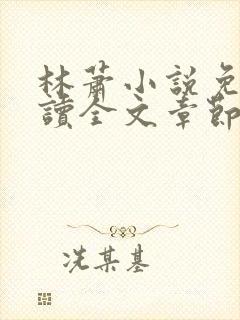 林蕭小說免
讀全文章節
冼某基